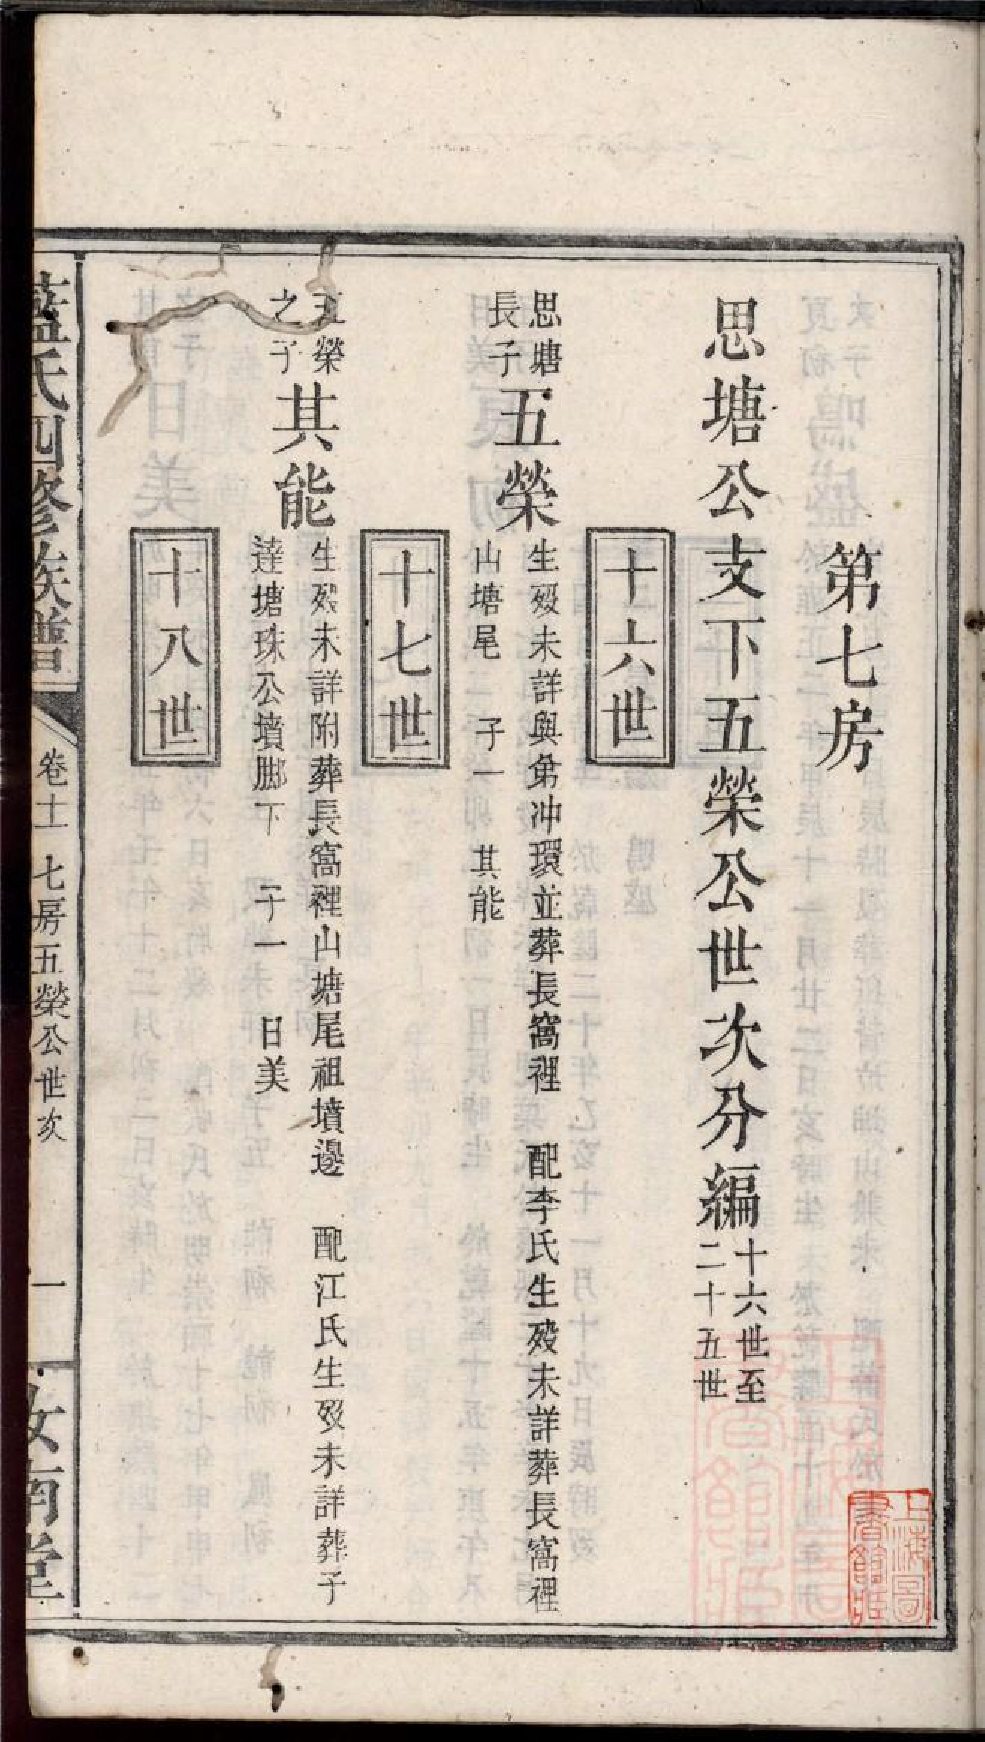 第七房
思塘公支下五榮公世次分編
十六世至
二十五世
十六世
思塘
長子
五榮
生歿未詳與弟冲環並葬長窩裡 配李氏生歿未詳葬長窩裡
山塘尾 子一 其能
十七世
五榮
之子
其能
生歿未詳附葬長窩裡山塘尾祖墳邊 配江氏生歿未詳葬子
達塘珠公墳脚下 子一 日美
十八世
藍氏四修族譜
卷十一 七房五榮公世次
一
汝南堂
上海圖
書館藏